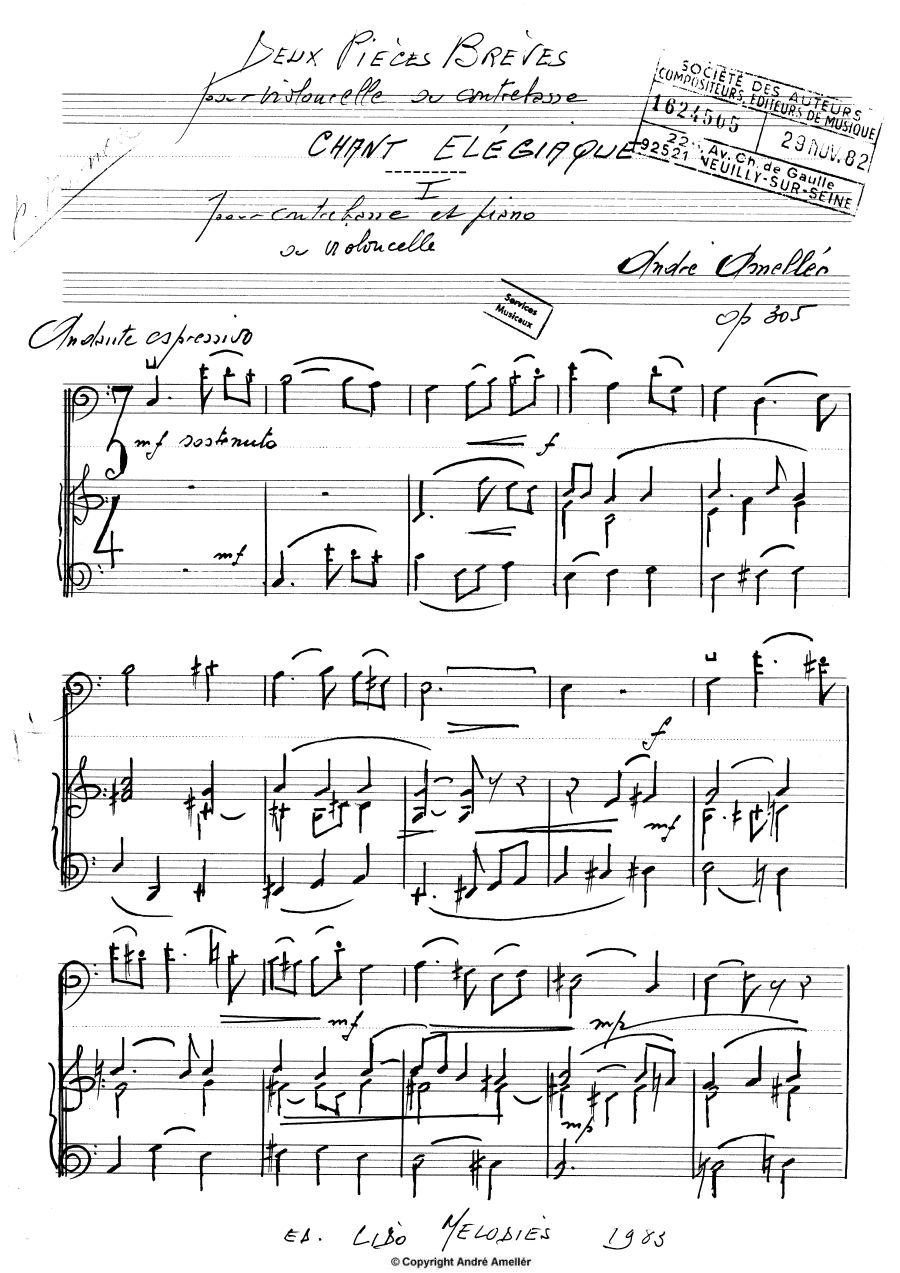 DEUX PIÈCES BRÈVES
pour violoncelle ou contrebasse
SOCIÉTÉ DES AUTEURS
COMPOSITEURS, EDITEURS DE MUSIQUE
1624505
29 NOV. 82
22, Av. Ch. de Gaulle
92521 NEUILLY-SUR-SEINE
CHANT ELÉGIAQUE
I
pour contrebasse et piano
ou violoncelle
André Amellér
op 305
Services
Musicaux
Andante espressivo
3
4
mf sostenuto
f
mf
f
mf
mf
mp
mp
ED. LIDO MELODIES 1983
© Copyright André Amellér